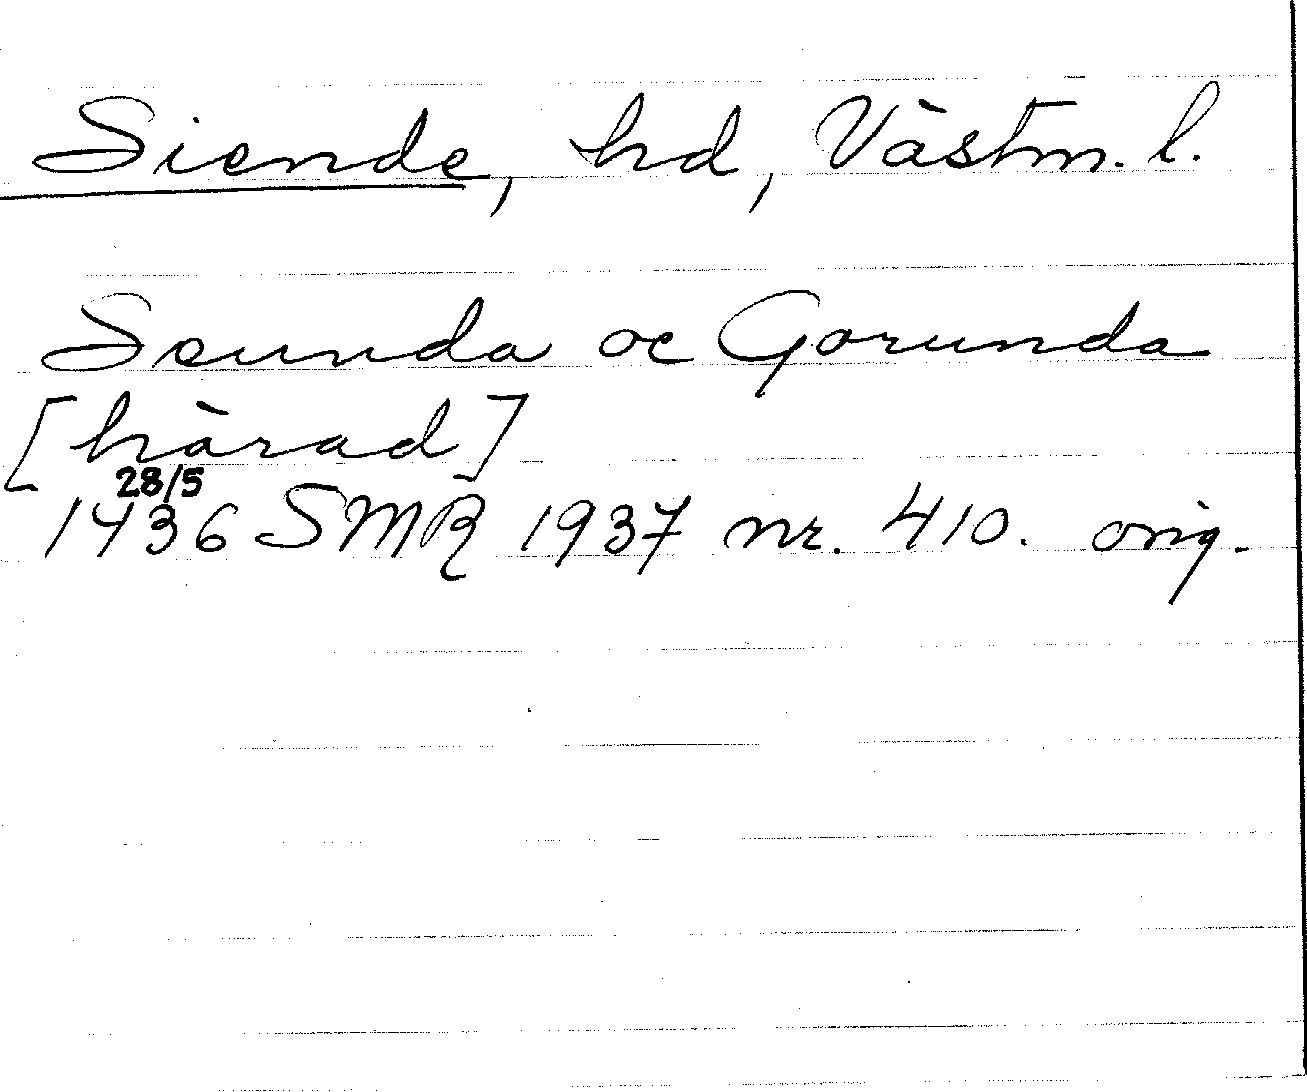 Siende, hd, Västm. l.
Seunda oc Gorunda
[härad]
28/5
1436 SMR 1937 nr. 410. orig.